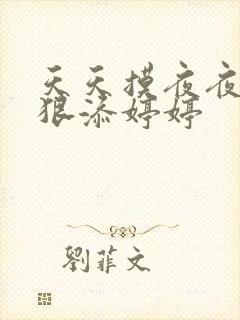 天天摸夜夜
狠添婷婷
劉菲文